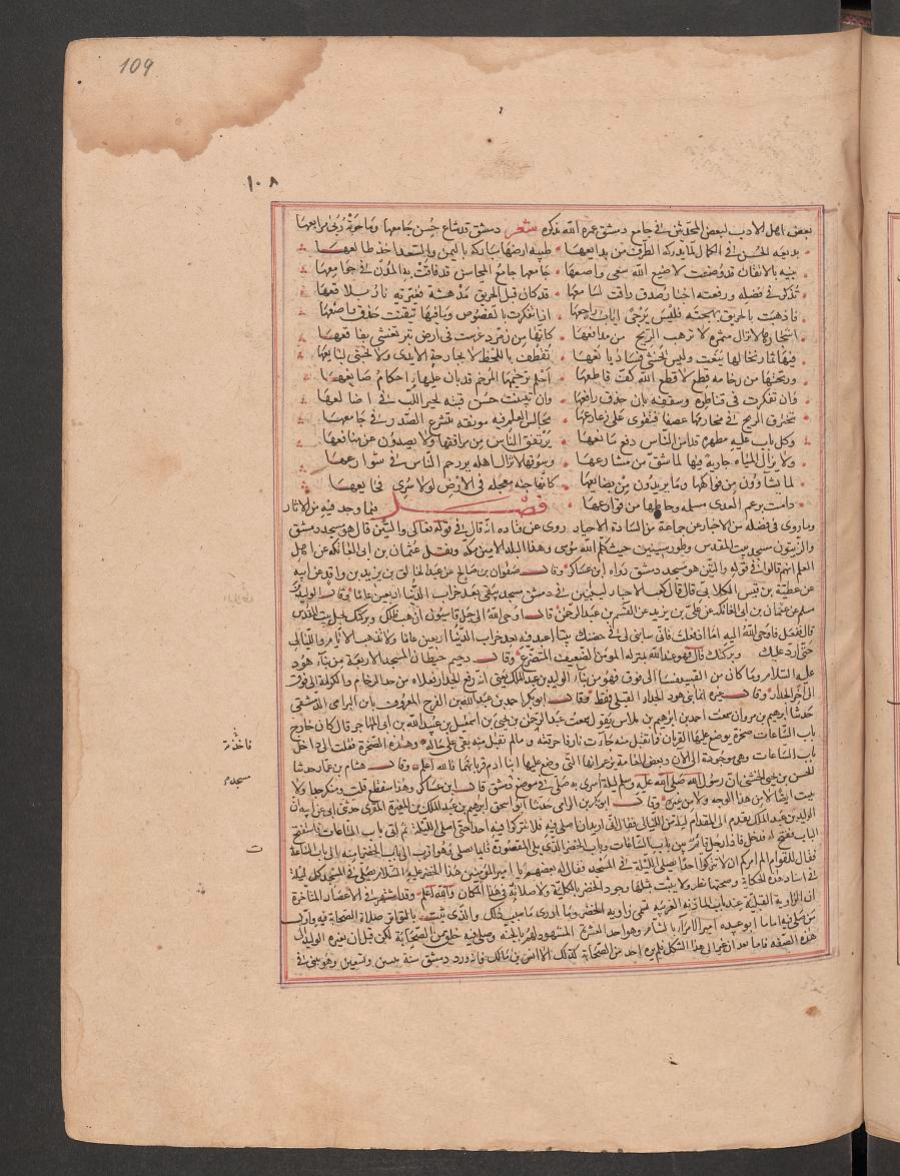 109
١٠٨
بعض اهل الادب لبعض المحدثين في جامع دمشق عمره الله بذكره شعر دمشق قد شاع حسن جامعها وما حوته ربى مرابعها
بديعة الحسن في الكمال لما يدركه الطرف من بدايعها طيبة ارضها مباركة باليمن والسعد اخذ طالعها
بنية بالاتقان قد وضعت لا ضيع الله سعى واضعها جامعها جامع المحاسن قد فاقت به المدن في جوامعها
تذكر في فضله ورفعته اخبار صدق راقت لسامعها قد كان قبل الحريق مدهشة فغيرته نار بلاقعها
فاذهبت بالحريق بهجته فليس يرجى اياب راجعها اذا تفكرت بالفصوص وما فيها تيقنت حذق راصعها
اشجارها لا تزال مثمرة لا ترهب الريح من مدافعها كانها من زمرد غرست في ارض تبر تغشى بفاقعها
فيها ثمار تخالها ينعت وليس يخشى فساد يانعها تقطف باللحظ لا بجارحة الايدي ولا تجتنى لبايعها
وتحتها من رخامه قطع لا قطع الله كف قاطعها احكم ترخيمها المرخم قد بان عليها احكام صانعها
وان تفكرت في قناطره وسقفه بان حذق رافعها وان تبينت حسن قبته تحير اللب في اضالعها
تخترق الريح في مخارمها عصفا فتقوى على زعازعها مجالس العلم فيه مونقة ينشرح الصدر في مجامعها
وكل باب عليه مطهرة قد امن الناس دفع مانعها يرتفق الناس من مرافقها ولا يصدون عن منافعها
ولا يزال المياه جارية فيها لما شق من مشارعها وسوقها لا تزال اهله يزدحم الناس في شوارعها
لما يشاؤون من فواكهها وما يريدون من بضايعها كانها جنة معجلة في الارض لولا سرى فجايعها
دامت برغم العدى مسلمة وحاطها من قوارعها فصل فيما وجد فيه من الاثار
وما روى في فضله من الاخبار عن جماعة من السادة الاخيار روى عن قتادة انه قال في قوله تعالى والتين قال هو مسجد دمشق
والزيتون مسجد بيت المقدس وطور سينين حيث كلم الله موسى وهذا البلد الامين مكة ونقل عثمان بن ابي العاتكة عن اهل
العلم انهم قالوا في قوله والتين هو مسجد دمشق رواه ابن عساكر وقال صفوان بن صالح عن عبد الخالق بن يزيد بن واقد عن ابيه
عن عطية بن قيس الكلابي قال قال كعب الاحبار ليبنين في دمشق مسجد يبقى بعد خراب الدنيا اربعين عاما وقال الوليد بن
مسلم عن عثمان بن ابي العاتكة عن علي بن يزيد عن القسم بن عبد الرحمن قال اوحى الله الى جبل قاسيون ان هب ظلك وبركتك لجبل بيت المقدس
قال ففعل فاوحى الله اليه اما اذ فعلت فاني سابني لي في حضنك بيتا اعبد فيه بعد خراب الدنيا اربعين عاما ولا تذهب الايام والليالي
حتى ارد عليك وبركتك قال فهو عند الله بمنزلة المومن الضعيف المتضرع وقال دحيم حيطان المسجد الاربعة من بناء هود
عليه السلام وما كان من الفسيفسا الى فوق فهو من بناء الوليد بن عبد الملك يعني انه رفع الجدار فعلاه من حد الرخام والكرمة الى فوق
الى آخر الجدار وقال غيره انما بنى هود الجدار القبلي فقط وقال ابو بكر احمد بن عبد الله بن الفرج المعروف بابن البرامي الدمشقي
حدثنا ابراهيم بن مروان سمعت احمد بن ابراهيم بن ملاس يقول سمعت عبد الرحمن بن يحيى بن اسمعيل بن عبيد الله بن ابي المهاجر قال كان خارج
باب الساعات صخرة يوضع عليها القربان فما تقبل منه جاءت نار فاحرقته وما لم تقبل منه بقي على حاله وهذه الصخرة نقلت الى داخل
باب الساعات وهي موجودة الى الان وبعض العامة يزعم انها التي وضع عليها ابنا ادم قربانهما فالله اعلم وقال هشام بن عمار حدثنا
الحسن بن يحيى الخشني ان رسول الله صلى الله عليه وسلم ليلة اسرى به صلى في موضع مسجد دمشق قال ابن عساكر وهذا منقطع قلت ومنكر جدا ولا
يثبت ايضا لا من هذا الوجه ولا من غيره وقال ابو بكر بن البرامي حدثنا ابو اسحق ابراهيم بن عبد الملك بن المغيرة المقرى حدثني ابي عن ابيه ان
الوليد بن عبد الملك تقدم الى القوام ليلة من الليالي فقال اني اريد ان اصلي فيه فلا تتركوا فيه احدا حتى اصلي الليلة ثم اتى باب الساعات فاستفتح
الباب ففتح له فدخل فاذا رجل قائم بين باب الساعات وباب الخضر الذي يلي المقصورة قائما يصلي وهو اقرب الى باب الخضر منه الى باب الساعات
فقال للقوام الم امركم ان لا تتركوا احدا يصلي الليلة في المسجد فقال له بعضهم يا امير المؤمنين هذا الخضر عليه السلام يصلي في المسجد كل ليلة
في اسناد هذه الحكاية وصحتها نظر ولا يثبت بمثلها وجود الخضر بالكلية ولا صلاته في هذا المكان والله اعلم وقد اشتهر في الاعصار المتاخرة
ان الزاوية القبلية عند باب الماذنة الغربية تسمى زاوية الخضر وما ادرى ما سبب ذلك والذي ثبت بالتواتر صلاة الصحابة فيه واول
من صلى فيه اماما ابو عبيدة امير الامراء بالشام وهو احد العشرة المشهود لهم بالجنة وصلى فيه خلق من الصحابة لكن قبل ان يغيره الوليد الى
هذه الصفة فاما بعد ان غير الى هذا الشكل فلم يره احد من الصحابة كذلك الا انس بن مالك فانه ورد دمشق سنة خمس وتسعين وهو يبنى في
فاخذته
مسجد
ت